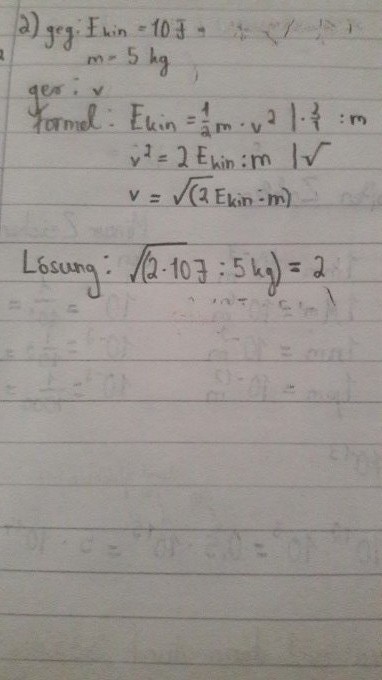 2) geg: Ekin = 10 J
m = 5 kg
ges: v
Formel: Ekin = 1/2 m · v² | · 2/1 : m
v² = 2 Ekin : m | √
v = √(2 Ekin : m)
Lösung: √(2 · 10 J : 5 kg) = 2